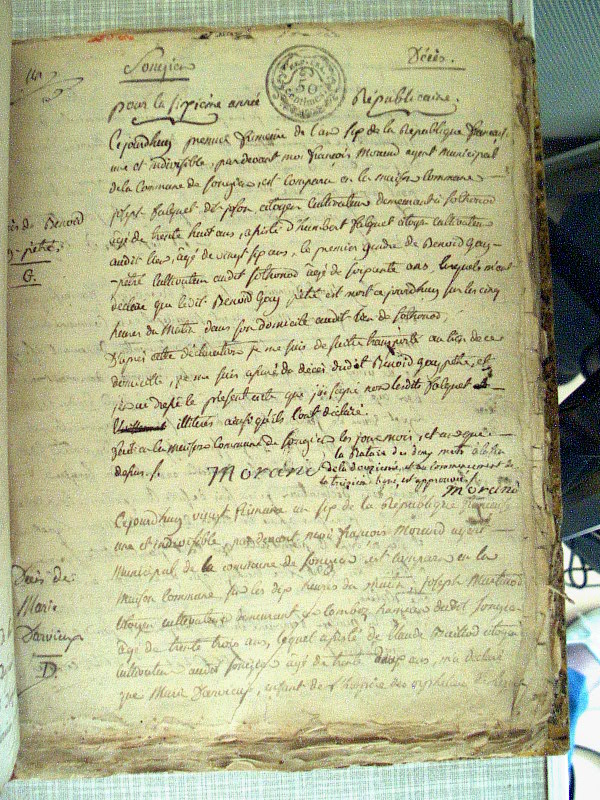 Songieu
Décès.
50
pour la sixième année Républicaine.
Cejourdhuy premier frimaire de l'an six de la République françai-
une et indivisible, pardevant moi françois Morand agent municipal
de la Commune de Songieu est comparu en la maison commune
joseph falquet citoyen cultivateur demeurant à Sothonod
agé de trente huit ans, assisté d'humbert falquet citoyen cultivateur
audit lieu, agé de vingt six ans, le premier gendre de Benoid Goy-
-pétré cultivateur audit Sothonod agé de soixante ans, lesquels m'ont
déclaré que ledit Benoid Goy pétré est mort cejourdhuy sur les cinq
heures du matin dans son domicile audit lieu de Sothonod.
D'après cette déclaration je me suis de suite transporté au lieu de ce
domicile, je me suis assuré du décès dudit Benoid Goy pétré, et
j'en ai dressé le présent acte que j'ai signé non lesdits falquet
illitérés ainsi qu'ils l'ont déclaré.
fait en la maison commune de Songieu les jour mois, et an que
dessus.
la rature des deux mots à la fin
de la douzième, et au commencement de
la treizième ligne, est approuvée
Morand
Morand
Décès de Benoid
Goy-pétré.
G.
Cejourdhuy vingt frimaire an six de la République française
une et indivisible, pardevant moi françois Morand agent
municipal de la commune de Songieu est comparu en la
maison commune sur les dix heures du matin, joseph
citoyen cultivateur demeurant hameau dudit Songieu
agé de trente trois ans, lequel assisté de Claude Maillod citoyen
cultivateur audit Songieu agé de trente ans, m'a déclaré
que Marie Darvieux, enfant de l'hospice des orphelins
Décès de
Marie
Darvieux
D.